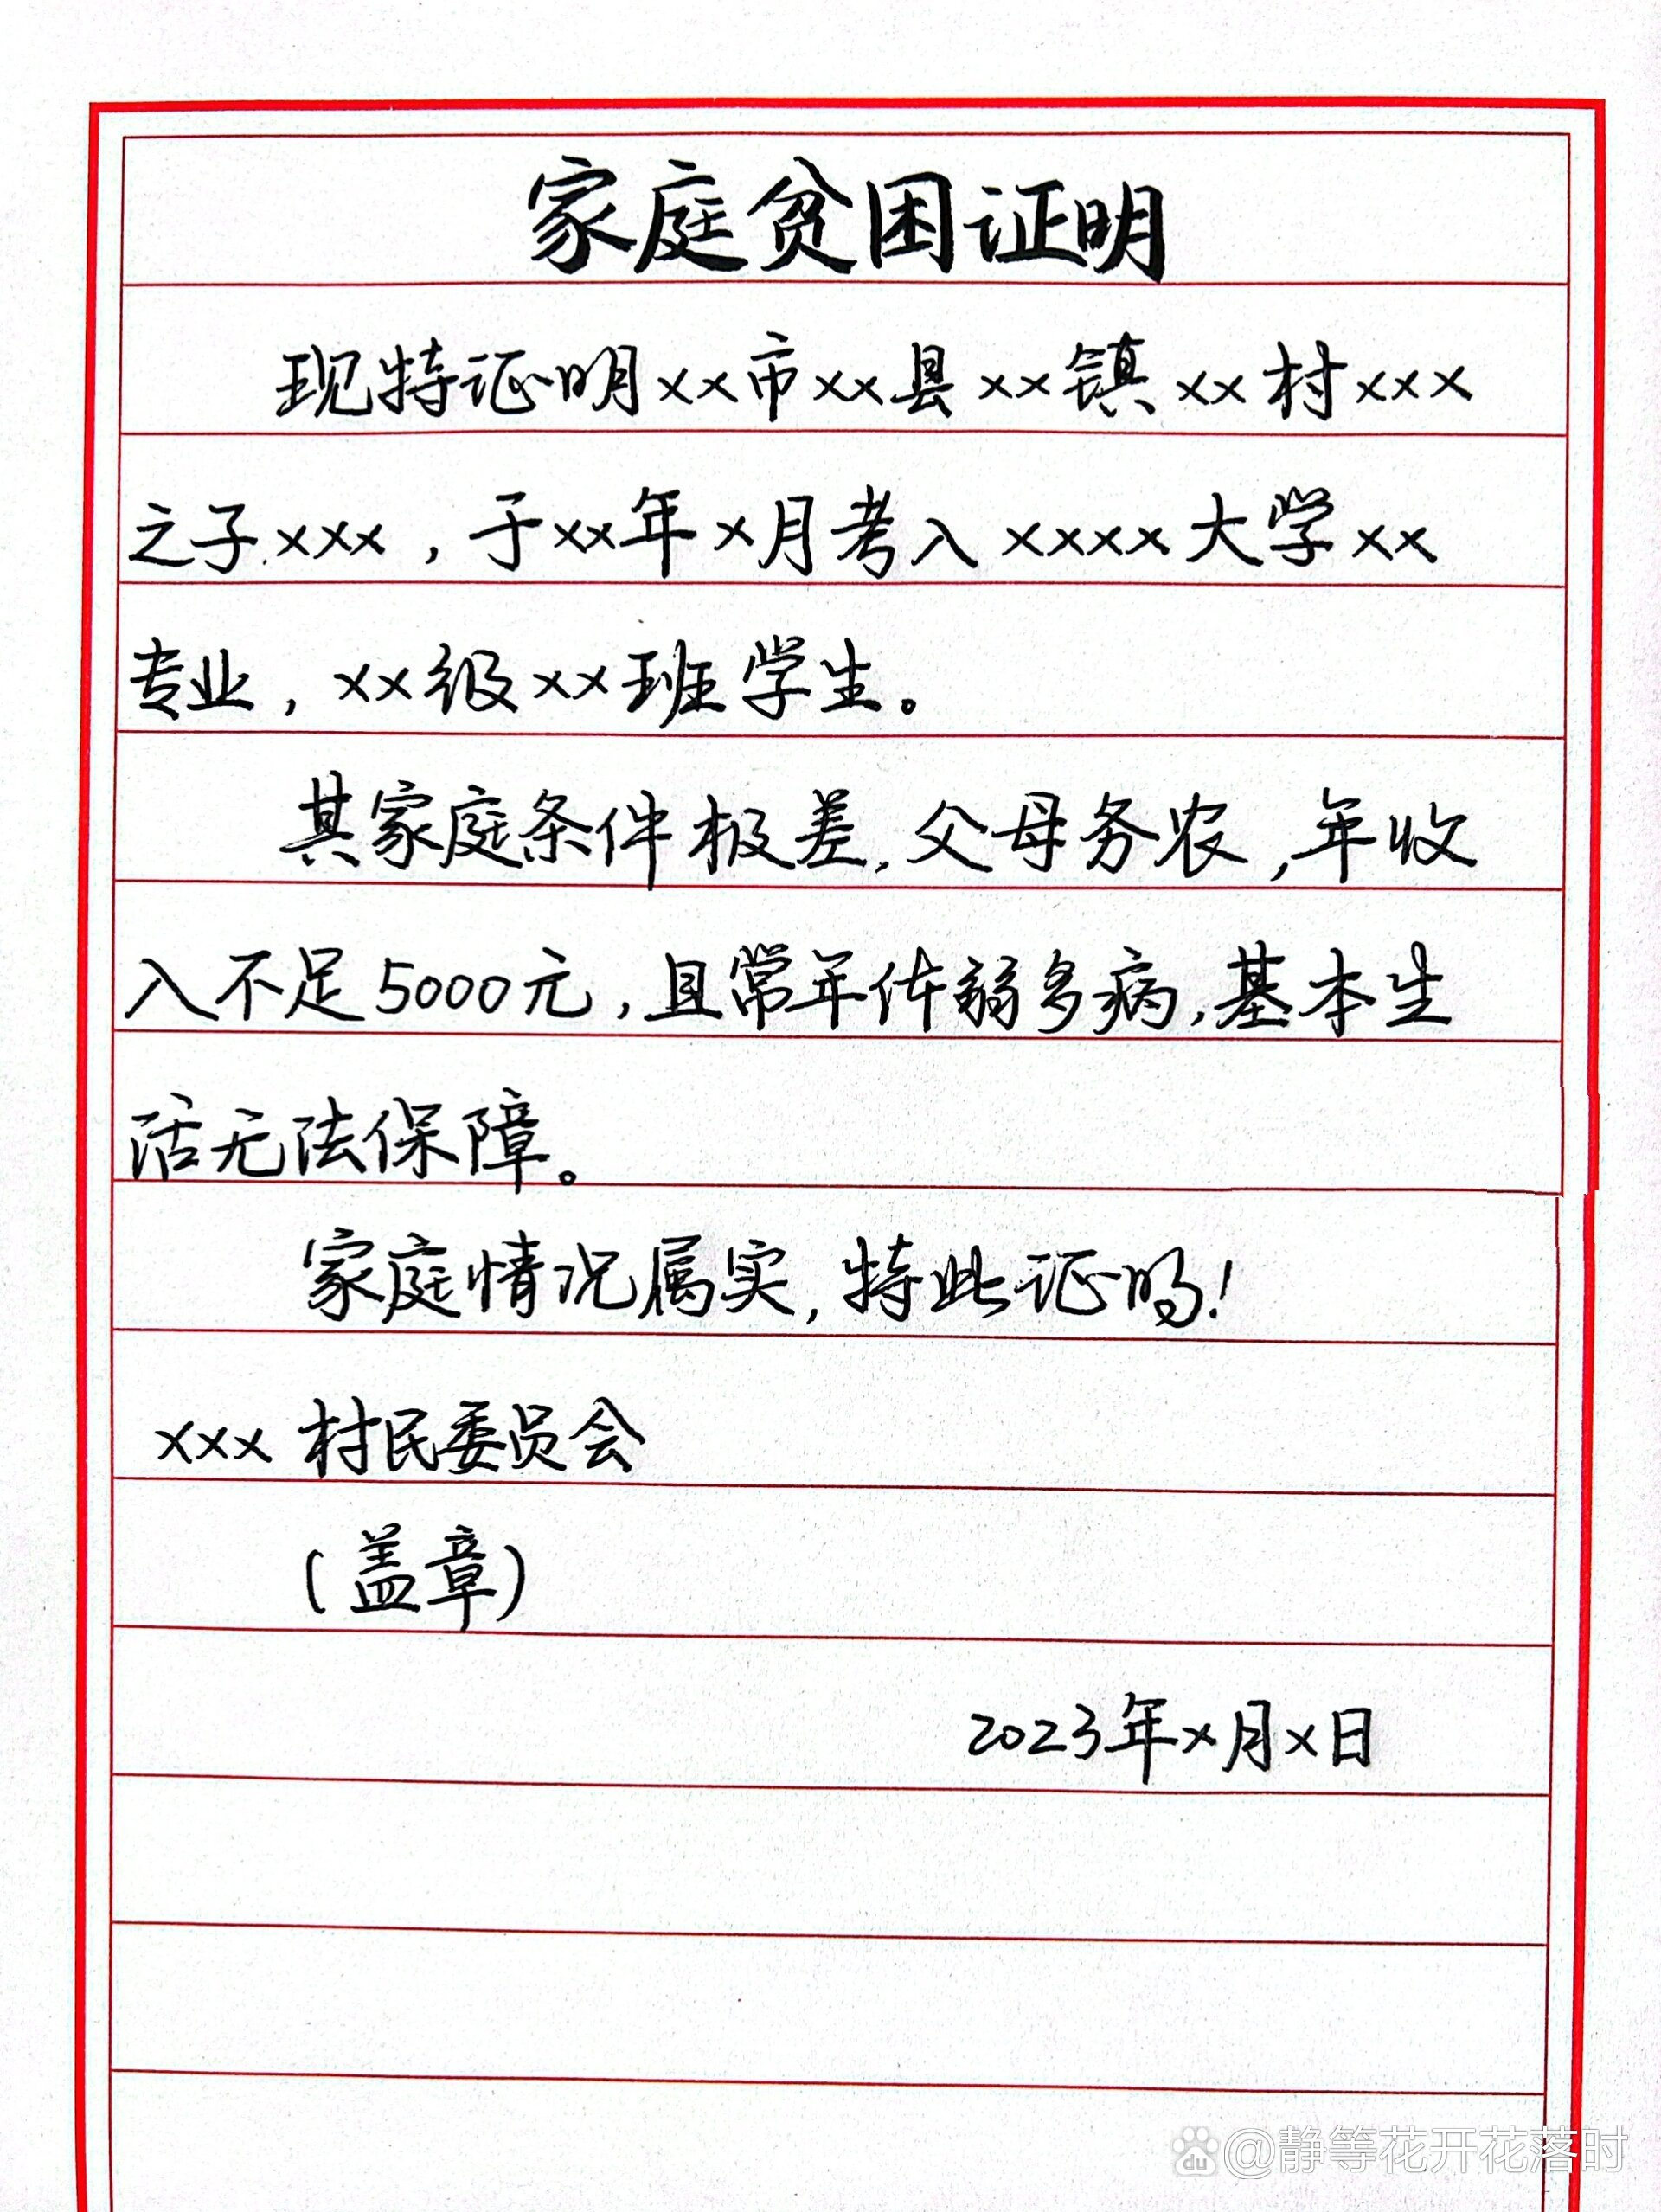 家庭贫困证明
现特证明xx市xx县xx镇xx村xxx
之子xxx，于xx年x月考入xxxx大学xx
专业，xx级xx班学生。
其家庭条件极差，父母务农，年收
入不足5000元，且常年体弱多病，基本生
活无法保障。
家庭情况属实，特此证明！
xxx村民委员会
（盖章）
2023年x月x日
du @静等花开花落时